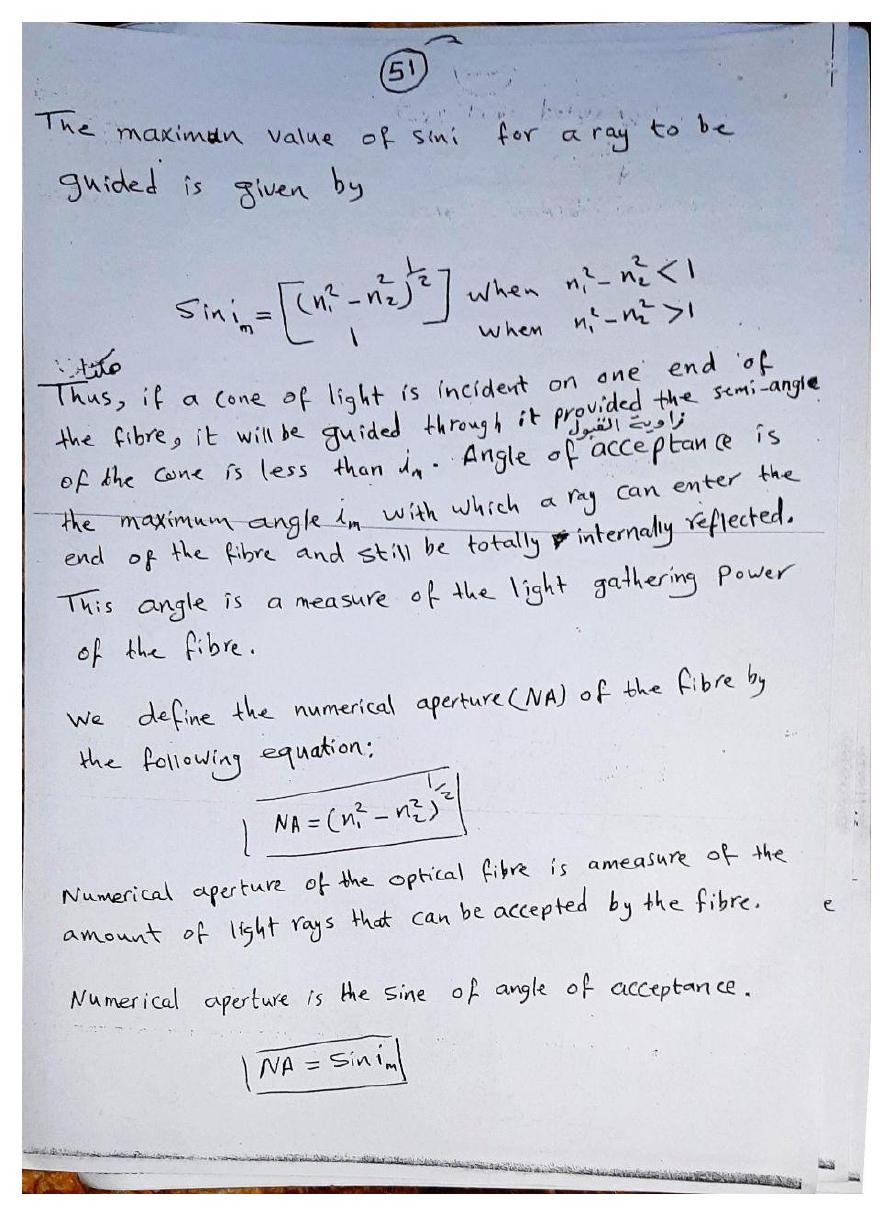 51
The maximun value of sini for a ray to be
guided is given by
Sin i_m = [(n₁² - n₂²)^1/2] when n₁² - n₂² < 1
1 when n₁² - n₂² > 1
Thus, if a cone of light is incident on one end of
the fibre, it will be guided through it provided the semi-angle
زاوية القبول
of the cone is less than i_m. Angle of acceptance is
the maximum angle i_m with which a ray can enter the
end of the fibre and still be totally internally reflected.
This angle is a measure of the light gathering power
of the fibre.
We define the numerical aperture (NA) of the fibre by
the following equation:
NA = (n₁² - n₂²)^1/2
Numerical aperture of the optical fibre is ameasure of the
amount of light rays that can be accepted by the fibre.
e
Numerical aperture is the sine of angle of acceptance.
NA = Sin i_m